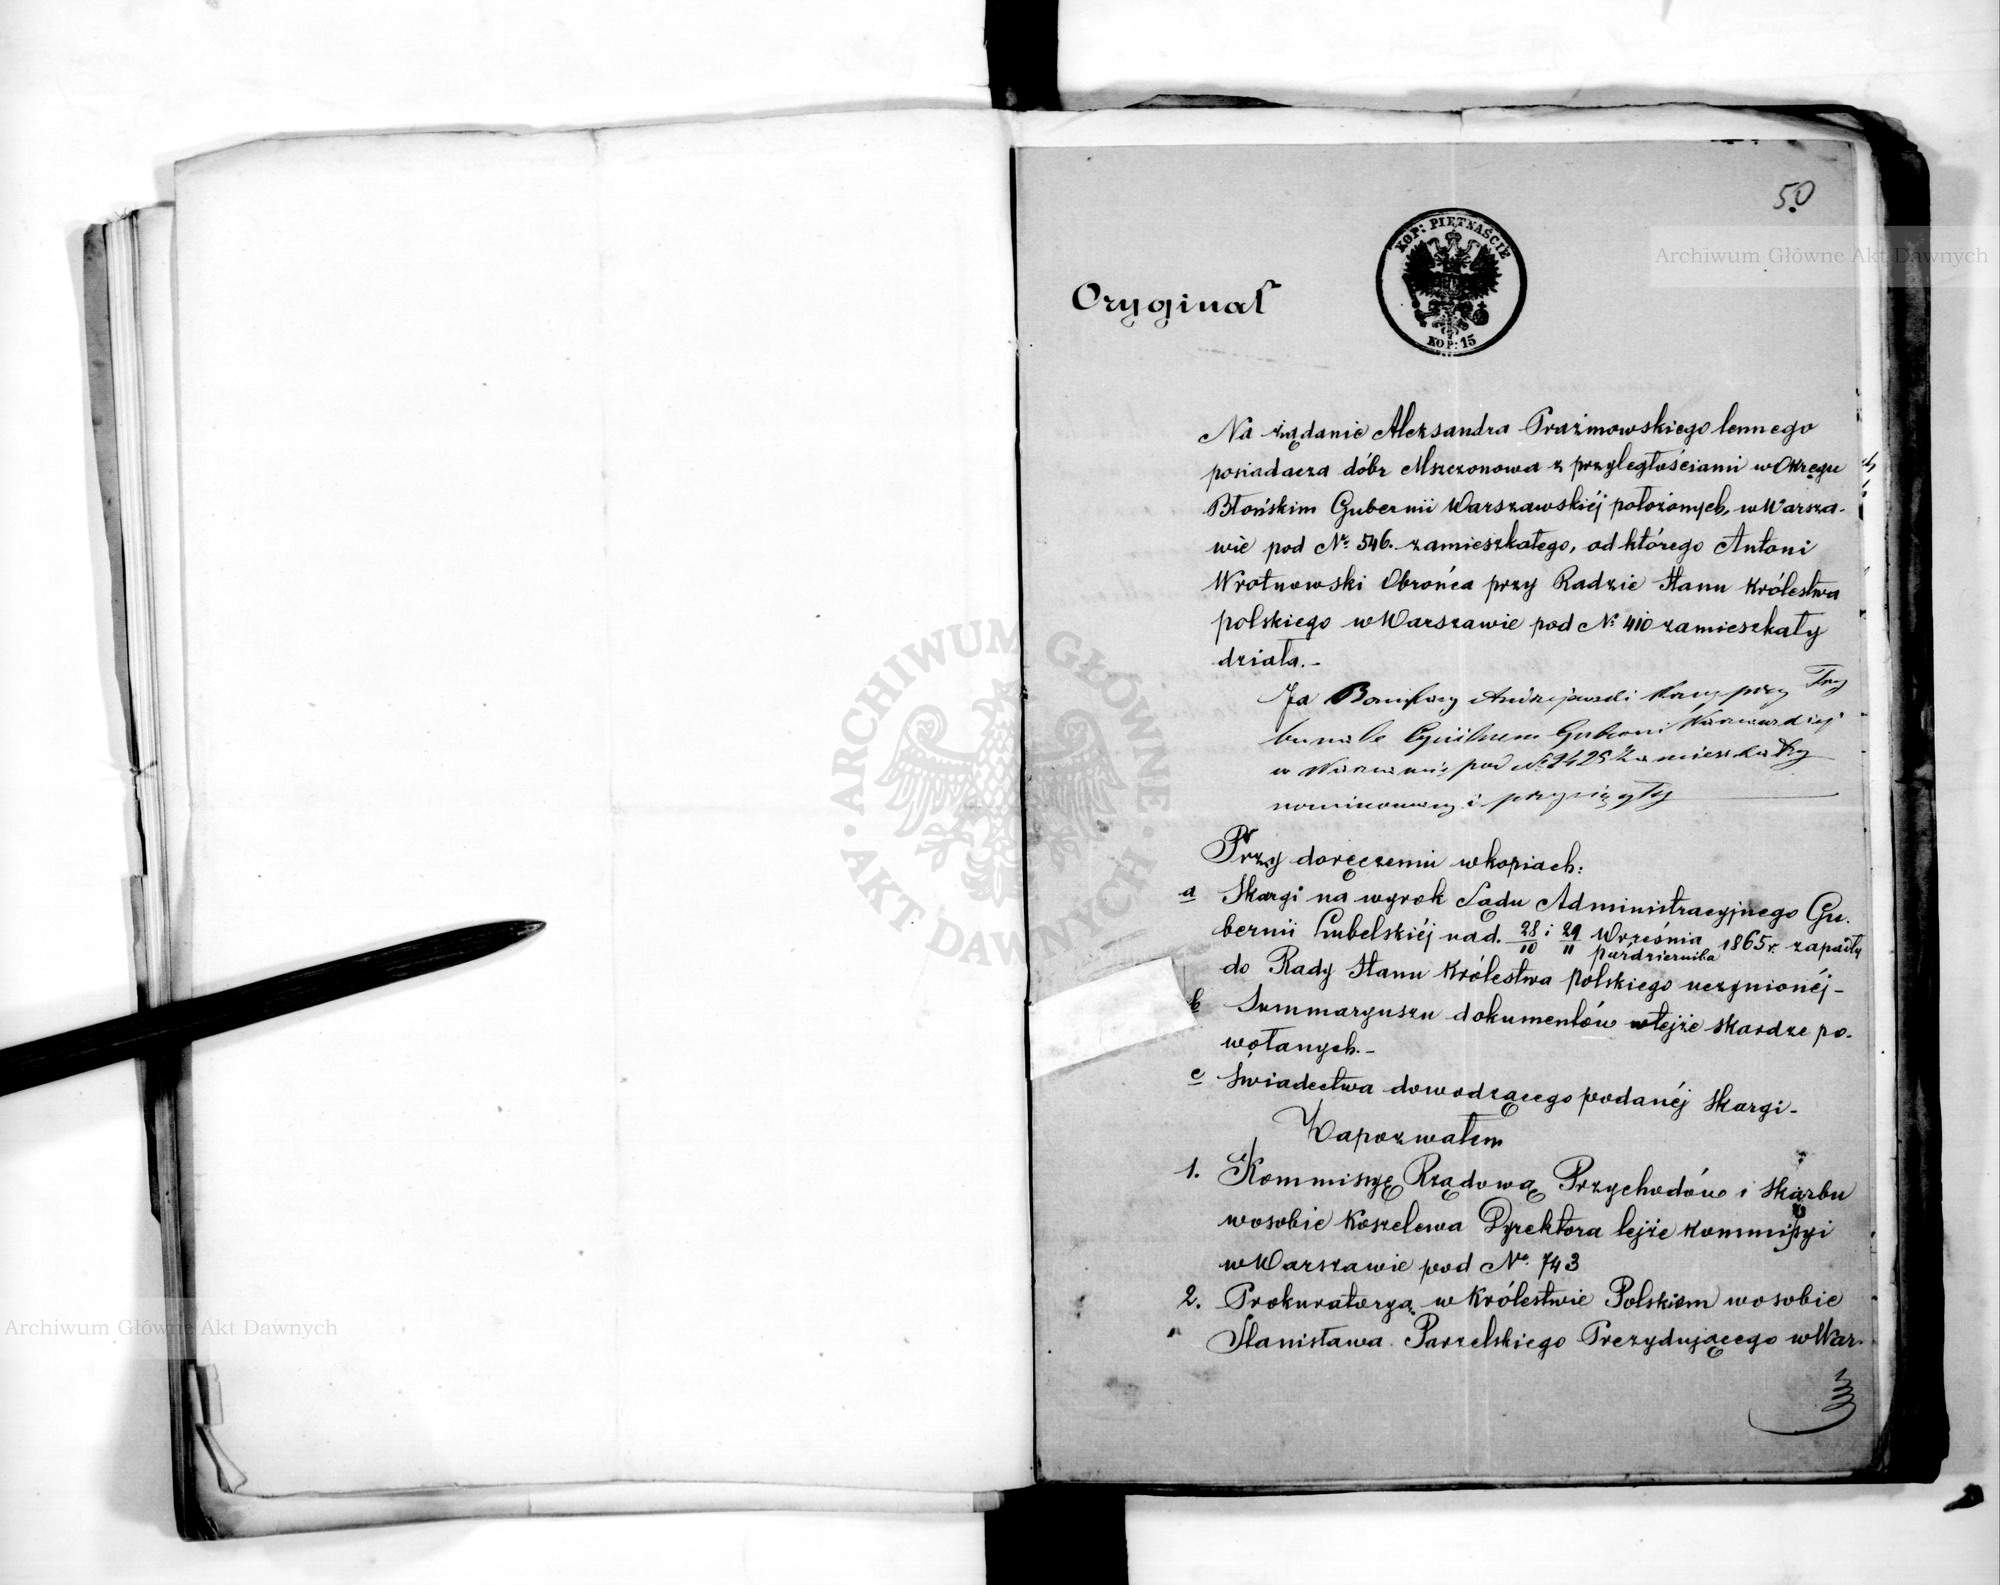 50
KOP: PIĘTNAŚCIE
KOP: 15
Oryginał
Na żądanie Alexandra Prażmowskiego lennego
posiadacza dóbr Mszczonowa z przyległościami w Okręgu
Błońskim Gubernii Warszawskiéj położonych, w Warsza-
wie pod No 546. zamieszkałego, od którego Antoni
Wrotnowski Obrońca przy Radzie Stanu Królestwa
polskiego w Warszawie pod No 410 zamieszkały
działa. -
Ja Bonifacy Andrzejewski przy Try
bunale Cywilnem Gubernii Warszawskiej
w Warszawie pod No 2425 zamieszkały
nominowany i przysięgły
Przy doręczeniu w kopiach:
a Skargi na wyrok Sądu Administracyjnego Gu-
bernii Lubelskiéj nad. 28/10 i 29/11 Września/października 1865 r. zapadły
do Rady Stanu Królestwa polskiego uczynionéj -
b Summaryuszu dokumentów w tejże skardze po-
wołanych. -
c Świadectwa dowodzącego podanéj Skargi -
Zapozwałem
1. Kommissyę Rządową Przychodów i Skarbu
w osobie Koszelewa Dyrektora tejże Kommissyi
w Warszawie pod No 743
2. Prokuratoryą w Królestwie Polskiem w osobie
Stanisława Parzelskiego Prezydującego w War-
Archiwum Główne Akt Dawnych
ARCHIWUM GŁÓWNE AKT DAWNYCH
Archiwum Główne Akt Dawnych